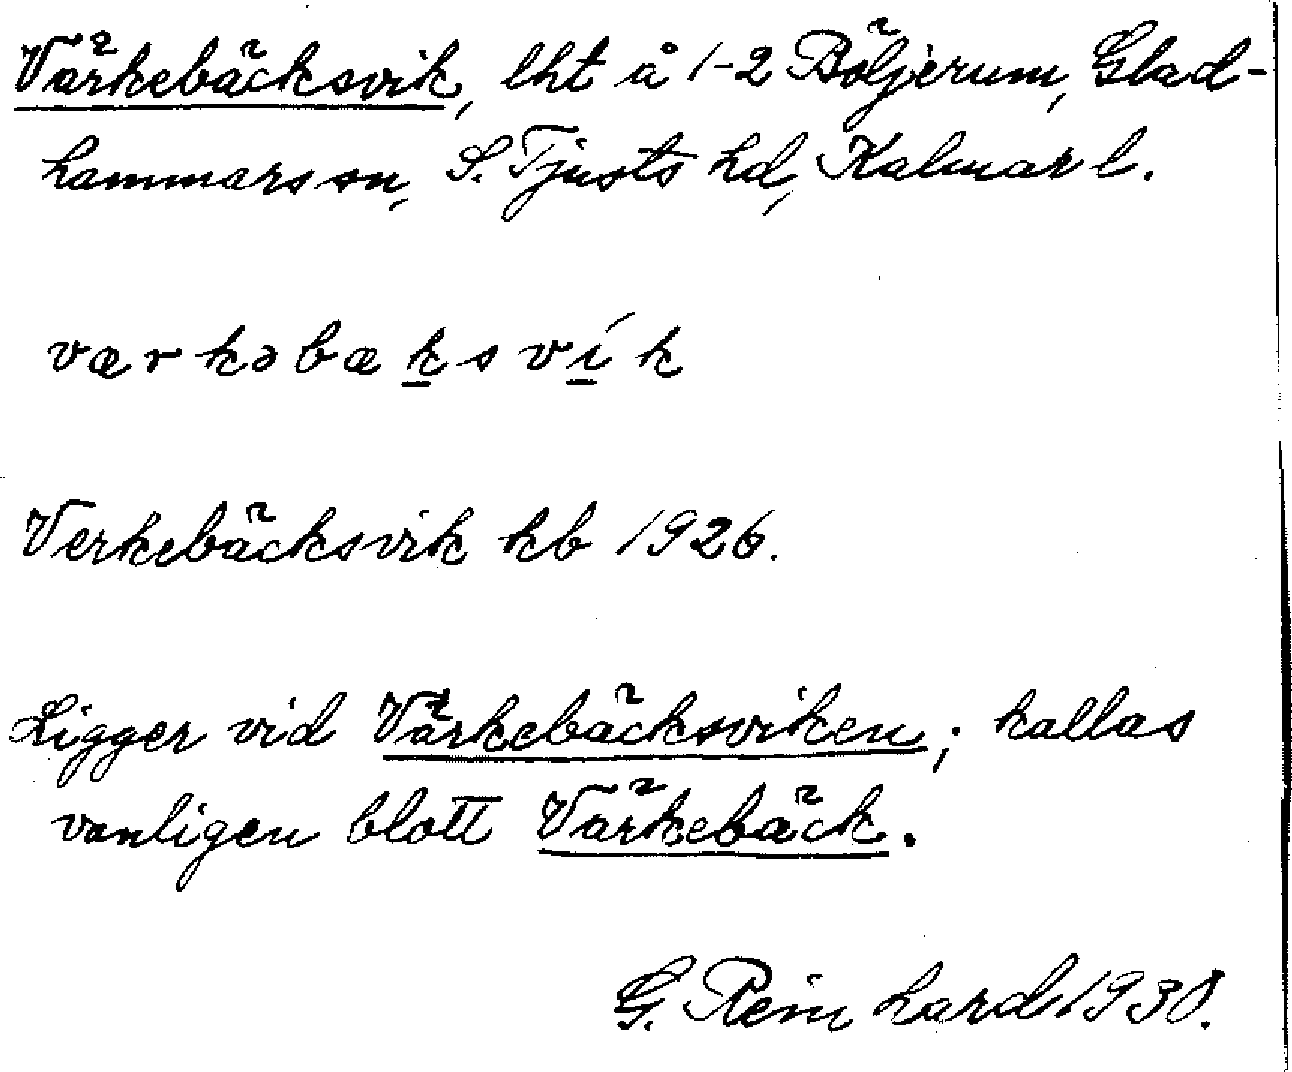 Värkebäcksvik, lht å 1-2 Böljerum, Glad-
hammars sn, S. Tjusts hd, Kalmar l.
værkəbæksvík
Verkebäcksvik kb 1926.
Ligger vid Värkebäcksviken; kallas
vanligen blott Värkebäck.
G. Reinhard 1930.